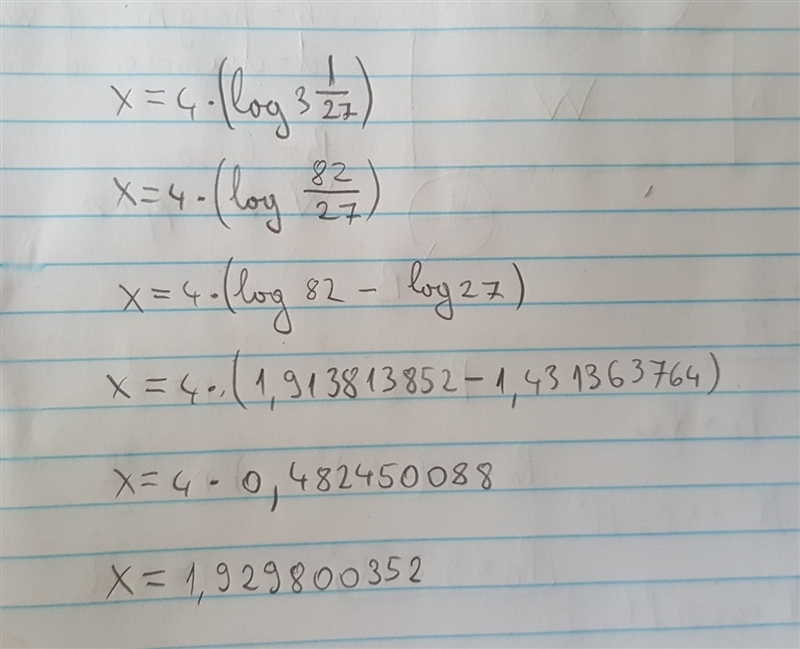 x = 4 · (log 3 1/27)
x = 4 · (log 82/27)
x = 4 · (log 82 - log 27)
x = 4 · (1,913813852 - 1,431363764)
x = 4 · 0,482450088
x = 1,929800352